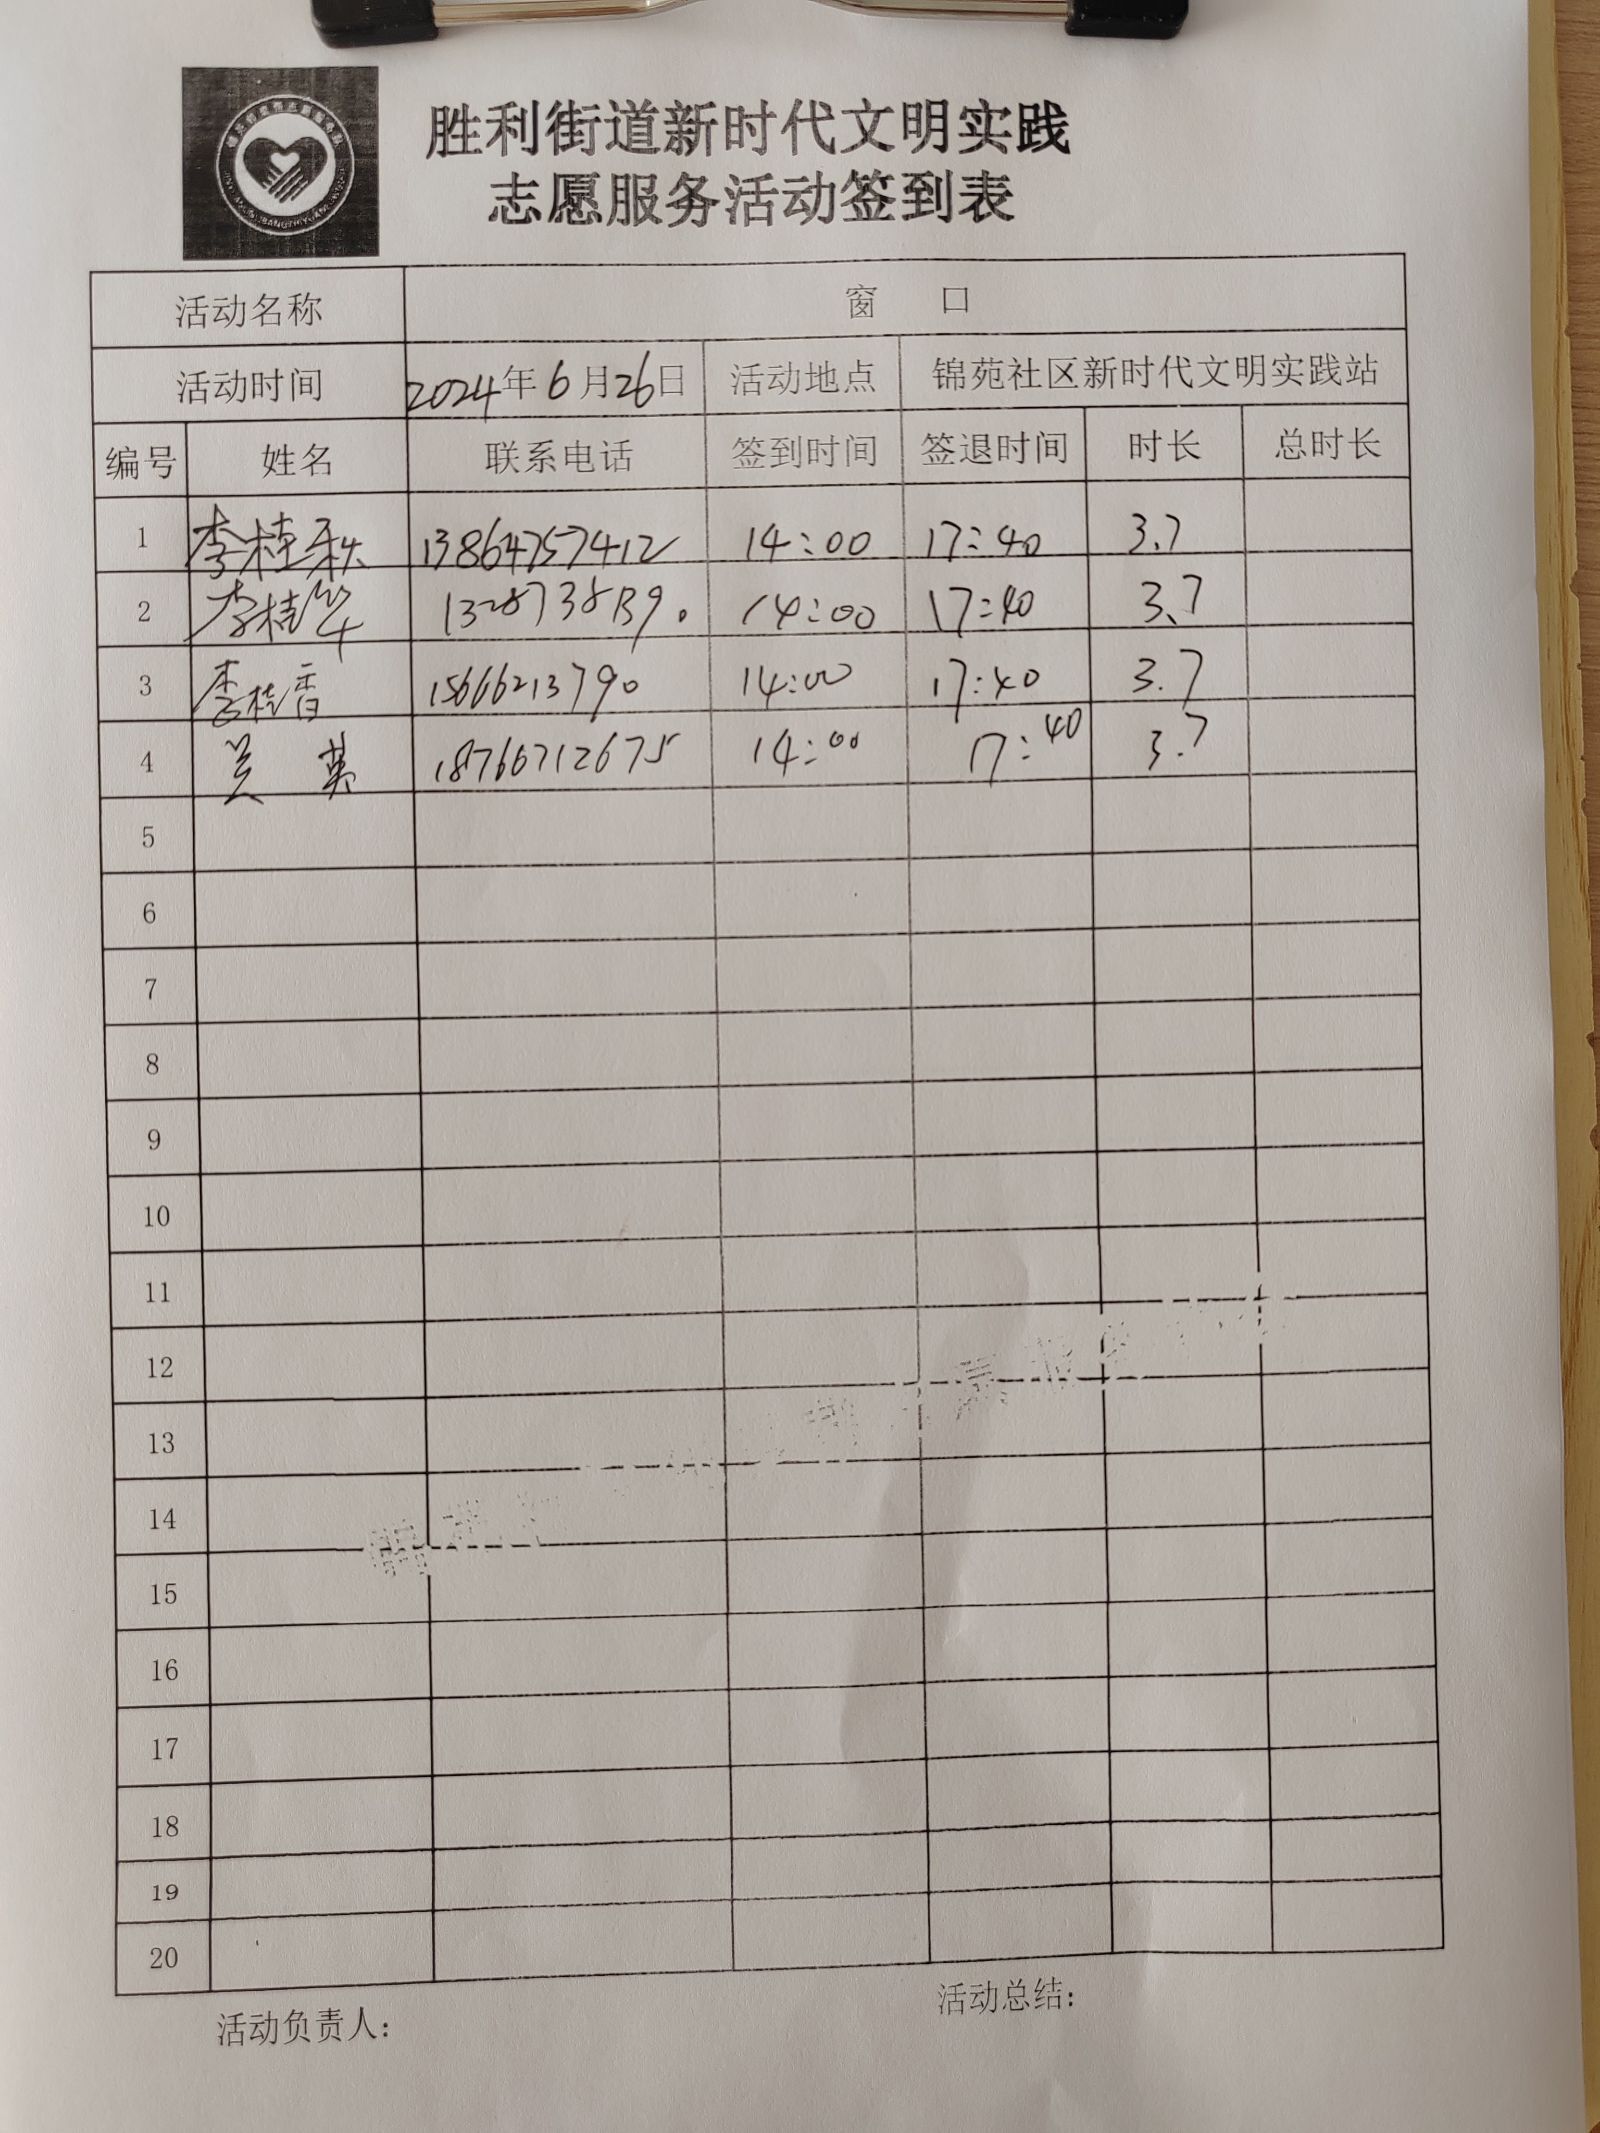 胜利街道新时代文明实践
志愿服务活动签到表
活动名称 窗 口
活动时间 2024年6月26日 活动地点 锦苑社区新时代文明实践站
编号 姓名 联系电话 签到时间 签退时间 时长 总时长
1 李桂秋 13864757412 14:00 17:40 3.7
2 李桂华 14:00 17:40 3.7
3 李桂香 15666213790 14:00 17:40 3.7
4 吴 英 18766712675 14:00 17:40 3.7
5
6
7
8
9
10
11
12
13
14
15
16
17
18
19
20
活动负责人: 活动总结: